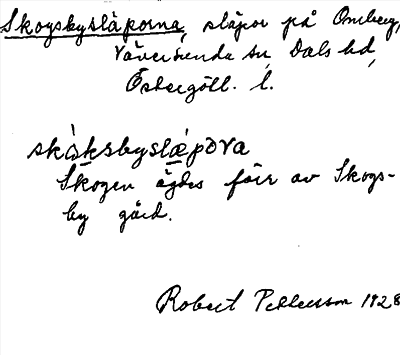 Skogsbysläporna, släpor på Omberg,
Väversunda sn, Dals hd,
Östergötl. l.
skàksbyslæ̀pơra
Skogen ägdes förr av Skogs-
by gård.
Robert Pettersson 1928